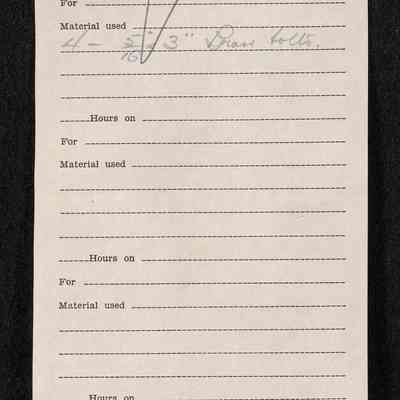 For
Material used
4 - 5/16" x 3" Brass bolts.
Hours on
For
Material used
Hours on
For
Material used
Hours on